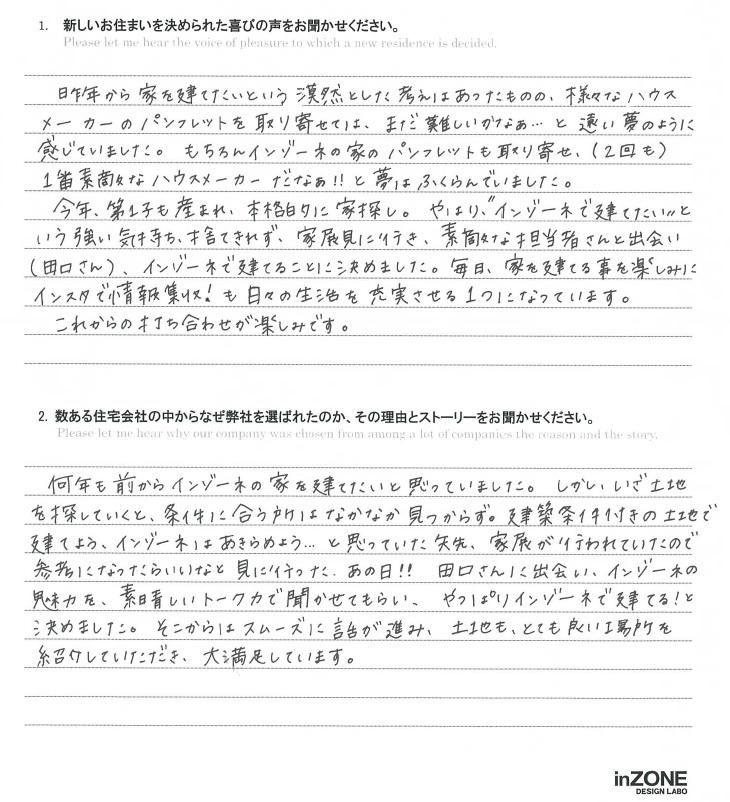 1. 新しいお住まいを決められた喜びの声をお聞かせください。
Please let me hear the voice of pleasure to which a new residence is decided.
昨年から家を建てたいという漠然とした考えはあったものの、様々なハウス
メーカーのパンフレットを取り寄せては、まだ難しいかなぁ…と遠い夢のように
感じていました。もちろんインゾーネの家のパンフレットも取り寄せ、(2回も)
1番素敵なハウスメーカーだなぁ!!と夢はふくらんでいました。
今年、第1子も産まれ、本格的に家探し。やはり、"インゾーネで建てたい"と
いう強い気持ち、捨てきれず、家展見に行き、素敵な担当者さんと出会い
(田口さん)、インゾーネで建てることに決めました。毎日、家を建てる事を楽しみに
インスタで情報集収!も日々の生活を充実させる1つになっています。
これからの打ち合わせが楽しみです。
2. 数ある住宅会社の中からなぜ弊社を選ばれたのか、その理由とストーリーをお聞かせください。
Please let me hear why our company was chosen from among a lot of companies the reason and the story.
何年も前からインゾーネの家を建てたいと思っていました。しかし、いざ土地
を探していくと、条件に合う所はなかなか見つからず。建築条件付きの土地で
建てよう、インゾーネはあきらめよう…と思っていた矢先、家展が行われていたので
参考になったらいいなと見に行った、あの日!! 田口さんに出会い、インゾーネの
魅力を、素晴しいトーク力で聞かせてもらい、やっぱりインゾーネで建てる!と
決めました。そこからはスムーズに話が進み、土地も、とても良い場所を
紹介していただき、大満足しています。
inZONE
DESIGN LABO